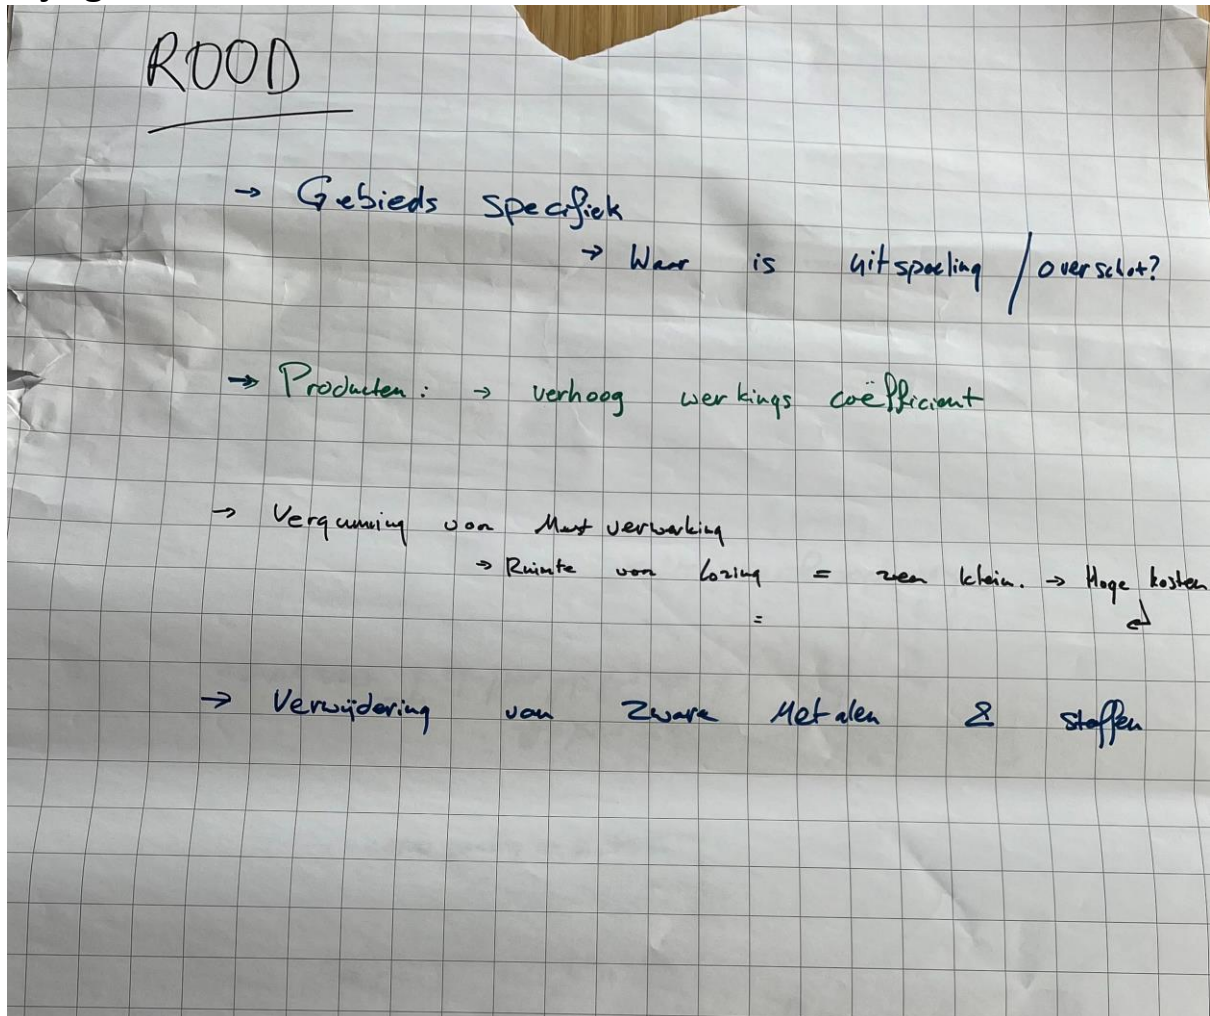 ROOD
→ Gebieds specifiek
→ Waar is uitspoeling / overschot?
→ Producten: → verhoog werkings coëfficient
→ Vergunning van Mest verwerking
→ Ruimte van lozing = zeer klein. → Hoge kosten
=
→ Verwijdering van zware Metalen & stoffen